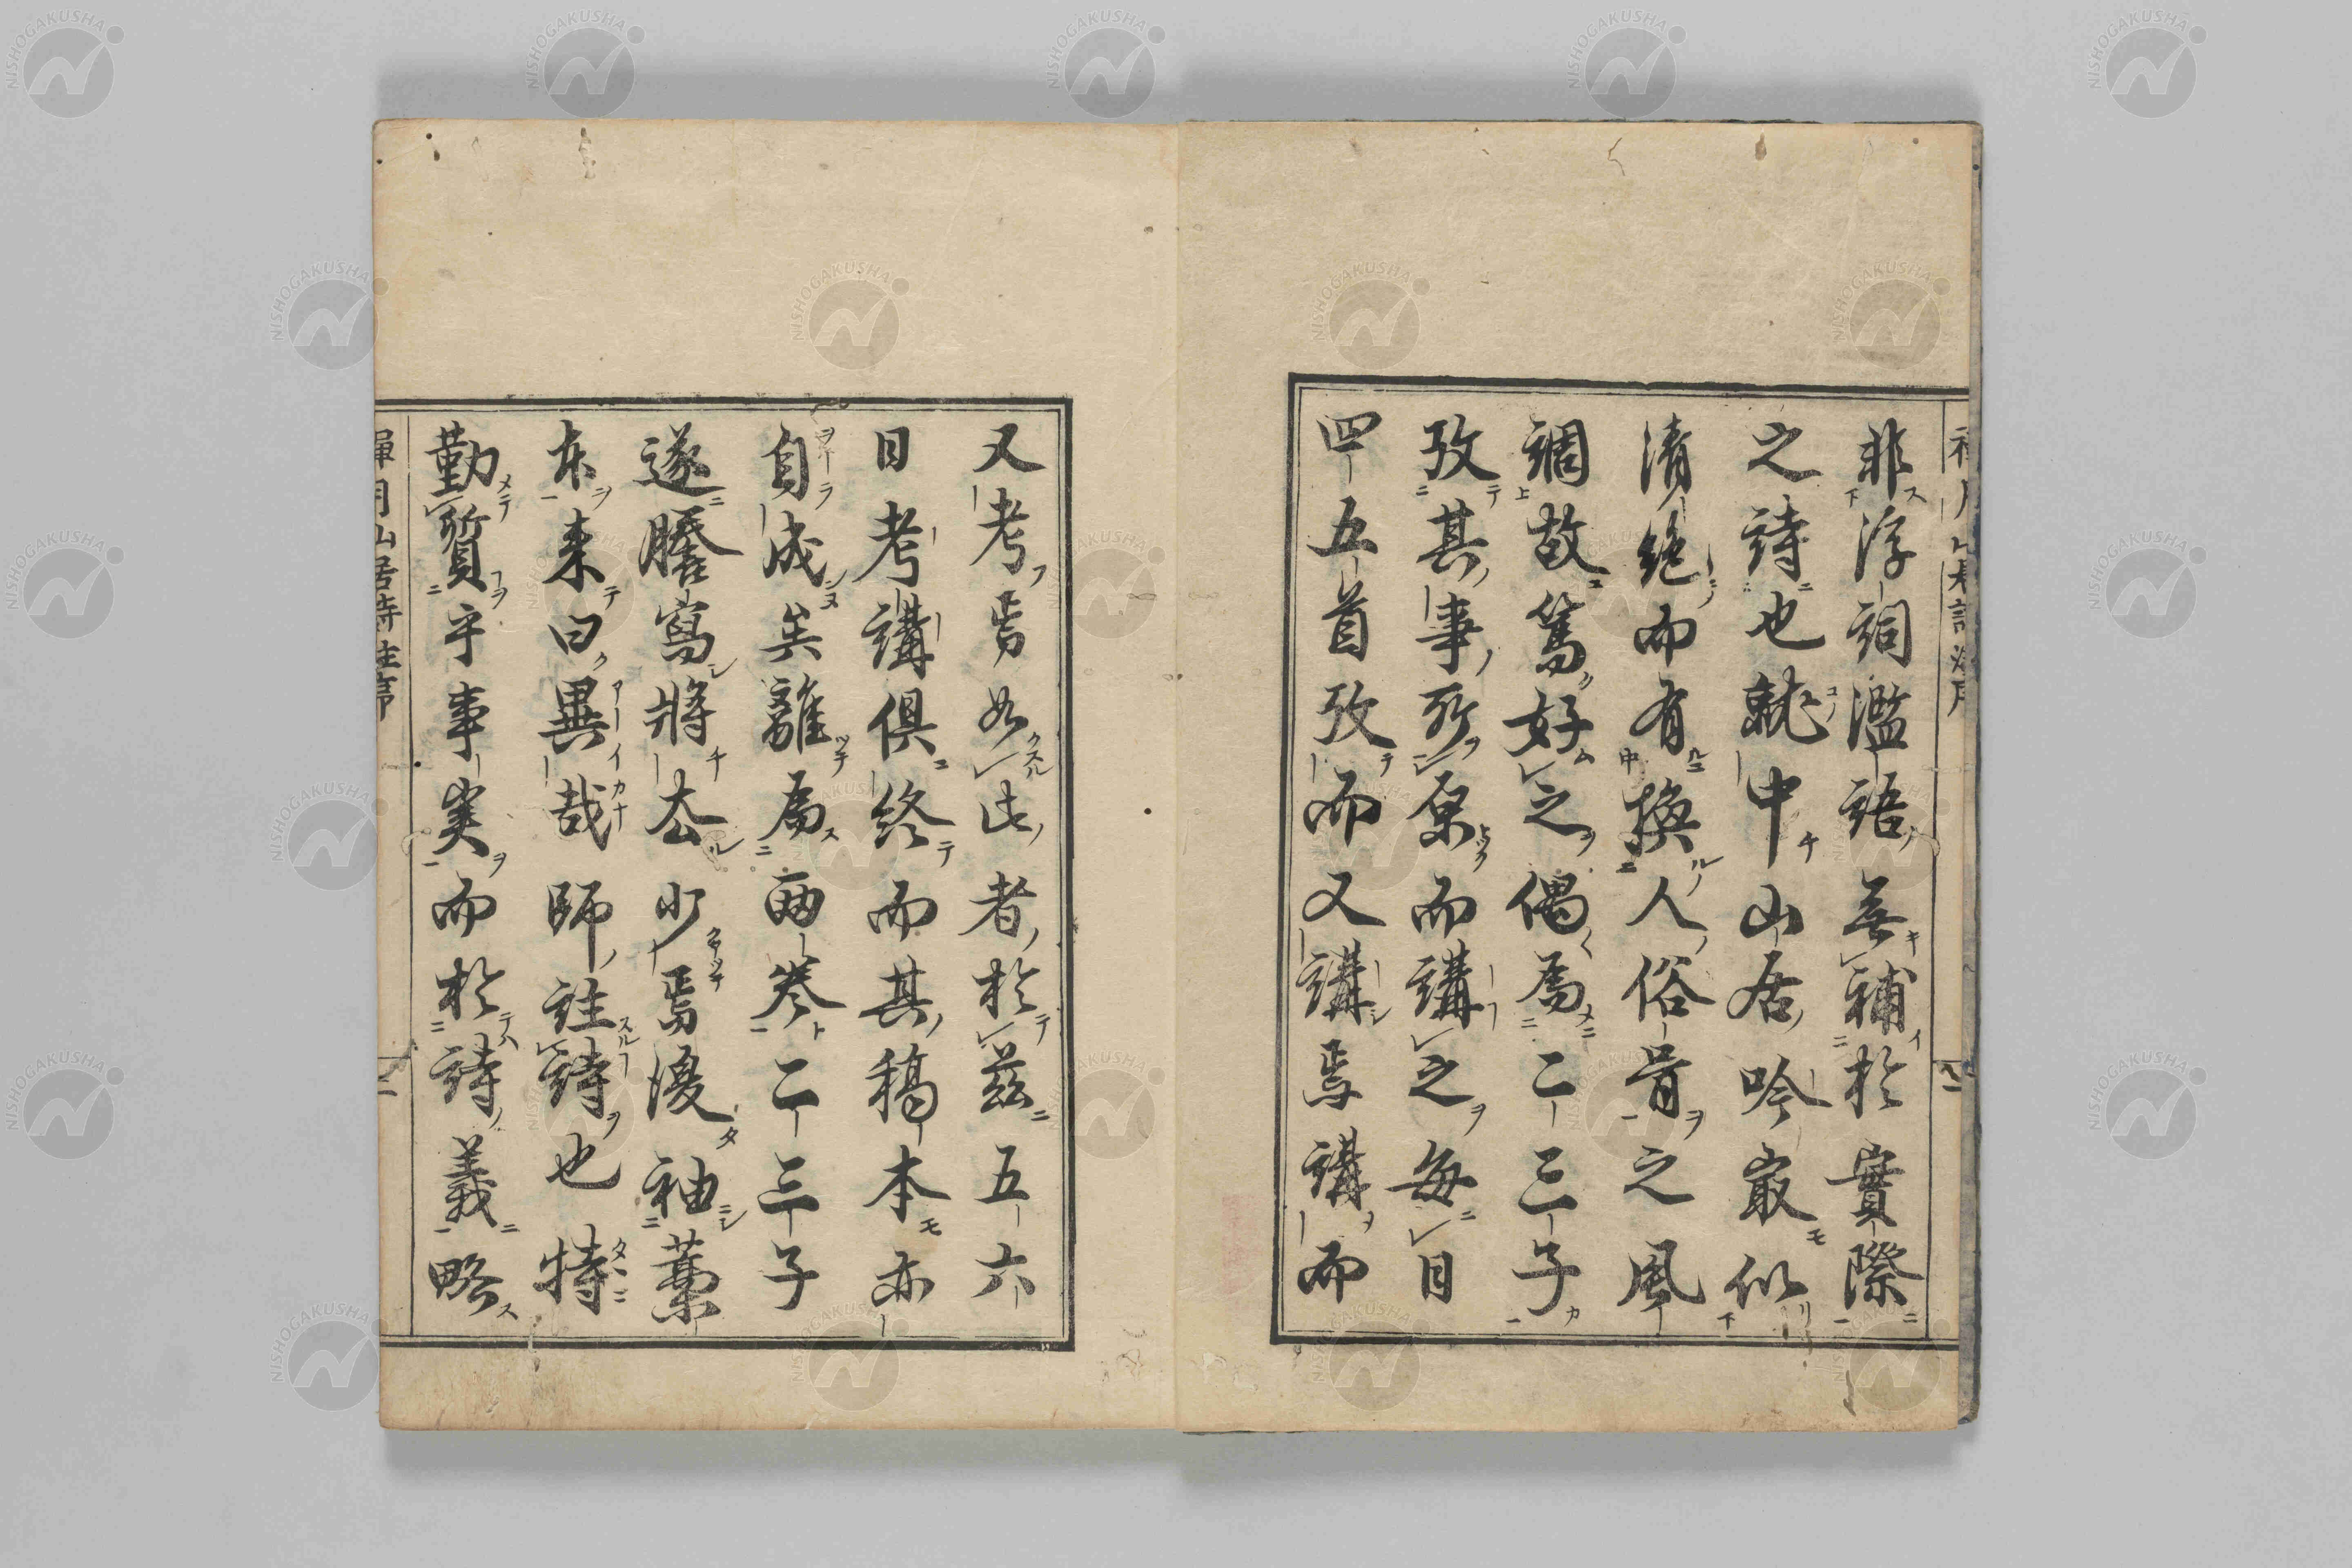 非浮詞濫語無補於實際
之詩也就中山居吟最似
清絶而有換人俗骨之風
調故篤好之偶爲二三子
攷其事所原而講之每日
四五首攷而又講焉講而
又考焉如此者於茲五六
日考講俱終而其稿本亦
自成矣離爲両卷二三子
遂謄寫將去少焉復袖藁
本来曰異哉師註詩也特
勤質乎事実而於詩義略
禪月山居詩註序
二
NISHOGAKUSHA